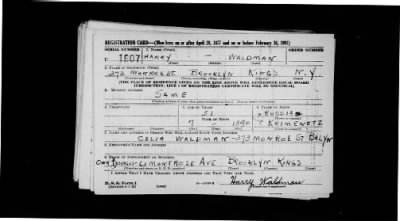 REGISTRATION CARD—(Men born on or after April 28, 1877 and on or before February 16, 1897)
SERIAL NUMBER 1. Name (Print) ORDER NUMBER
U 1607 HARRY WALDMAN
2. Place of Residence (Print)
373 MONROE ST. BROOKLYN KINGS N.Y
[THE PLACE OF RESIDENCE GIVEN ON THE LINE ABOVE WILL DETERMINE LOCAL BOARD
JURISDICTION; LINE 2 OF REGISTRATION CERTIFICATE WILL BE IDENTICAL]
3. Mailing Address
SAME
4. Telephone 5. Age in Years 6. Place of Birth
51 RUSSIA
Date of Birth
7 1890 KRIMENETZ
7. Name and Address of Person Who Will Always Know Your Address
CELIA WALDMAN - 373 MONROE ST BKLYN
8. Employer's Name and Address
9. Place of Employment or Business
61 MONTROSE AVE BROOKLYN KINGS
I Affirm That I Have Verified Above Answers and That They Are True.
D. S. S. Form 1
Harry Waldman